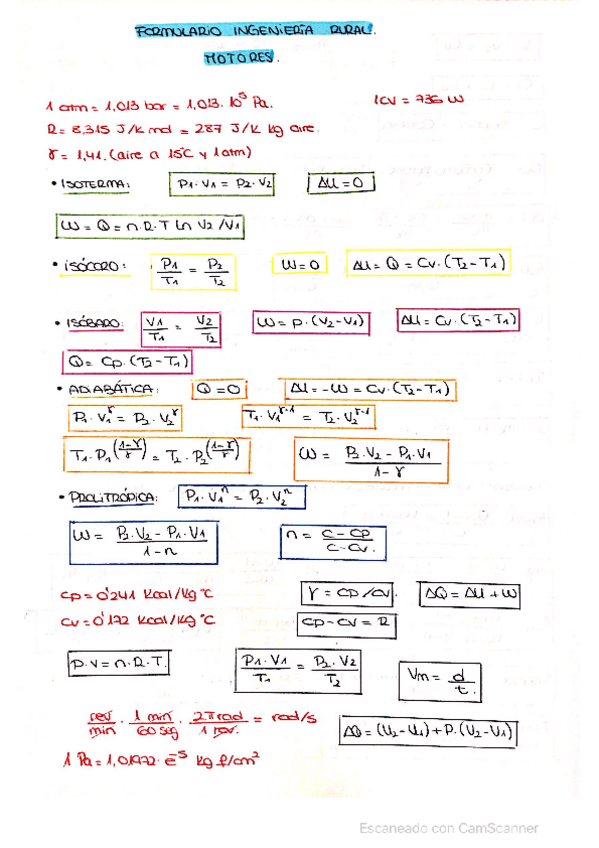 FORMULARIO INGENIERÍA RURAL.
MOTORES.
1 atm = 1,013 bar = 1,013 · 10⁵ Pa.    1CV = 736 W
R = 8,315 J/K mol = 287 J/K kg aire.
γ = 1,41. (aire a 15°C y 1 atm)
• ISOTERMA: P1 · V1 = P2 · V2    ΔU = 0
W = Q = n · R · T ln V2 / V1
• ISÓCORO: P1/T1 = P2/T2    W = 0    ΔU = Q = Cv · (T2 - T1)
• ISÓBARO: V1/T1 = V2/T2    W = P · (V2 - V1)    ΔU = Cv · (T2 - T1)
Q = Cp · (T2 - T1)
• ADIABÁTICA: Q = 0    ΔU = -W = Cv · (T2 - T1)
P1 · V1^γ = P2 · V2^γ    T1 · V1^γ-1 = T2 · V2^γ-1
T1 · P1^(1-γ/γ) = T2 · P2^(1-γ/γ)    W = P2 · V2 - P1 · V1 / 1 - γ
• POLITRÓPICA: P1 · V1^n = P2 · V2^n
W = P2 · V2 - P1 · V1 / 1 - n    n = C - CP / C - CV.
CP = 0'241 Kcal/Kg °C    γ = CP / CV.    ΔQ = ΔU + W
CV = 0'172 Kcal/Kg °C    CP - CV = R
P · V = n · R · T.    P1 · V1 / T1 = P2 · V2 / T2    Vm = d / t.
rev/min · 1 min/60 seg · 2π rad/1 rev. = rad/s    ΔQ = (U2 - U1) + P · (V2 - V1)
1 Pa = 1,01972 · e⁻⁵ Kg f/cm²
Escaneado con CamScanner